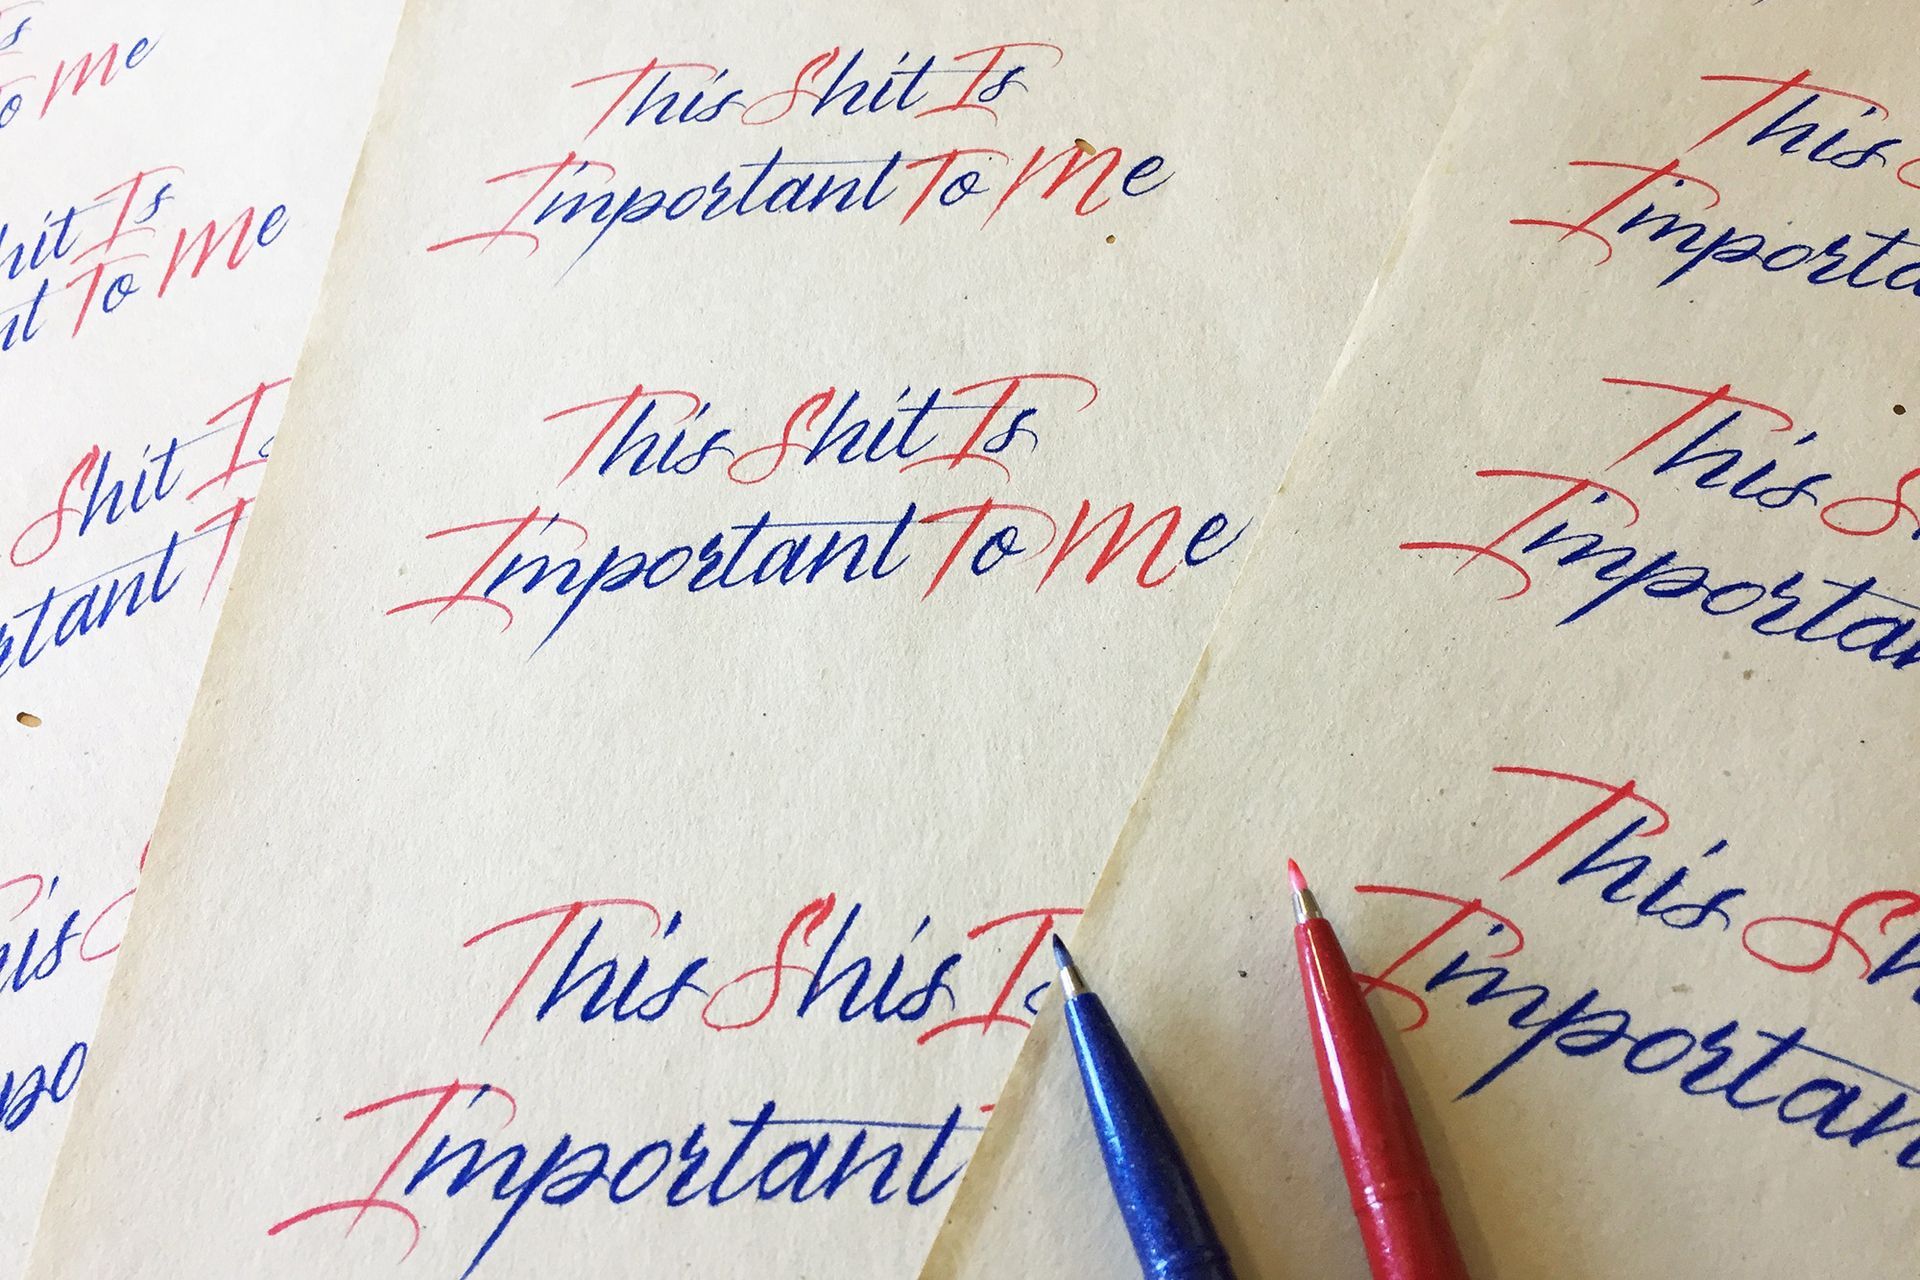 Is
To Me
hit Is
nt To Me
Shit Is
rtant T
his S
po
This Shit Is
Important To Me
This Shit Is
Important To Me
This Shis Is
Important
This S
Importa
This S
Importan
This Sh
Importan